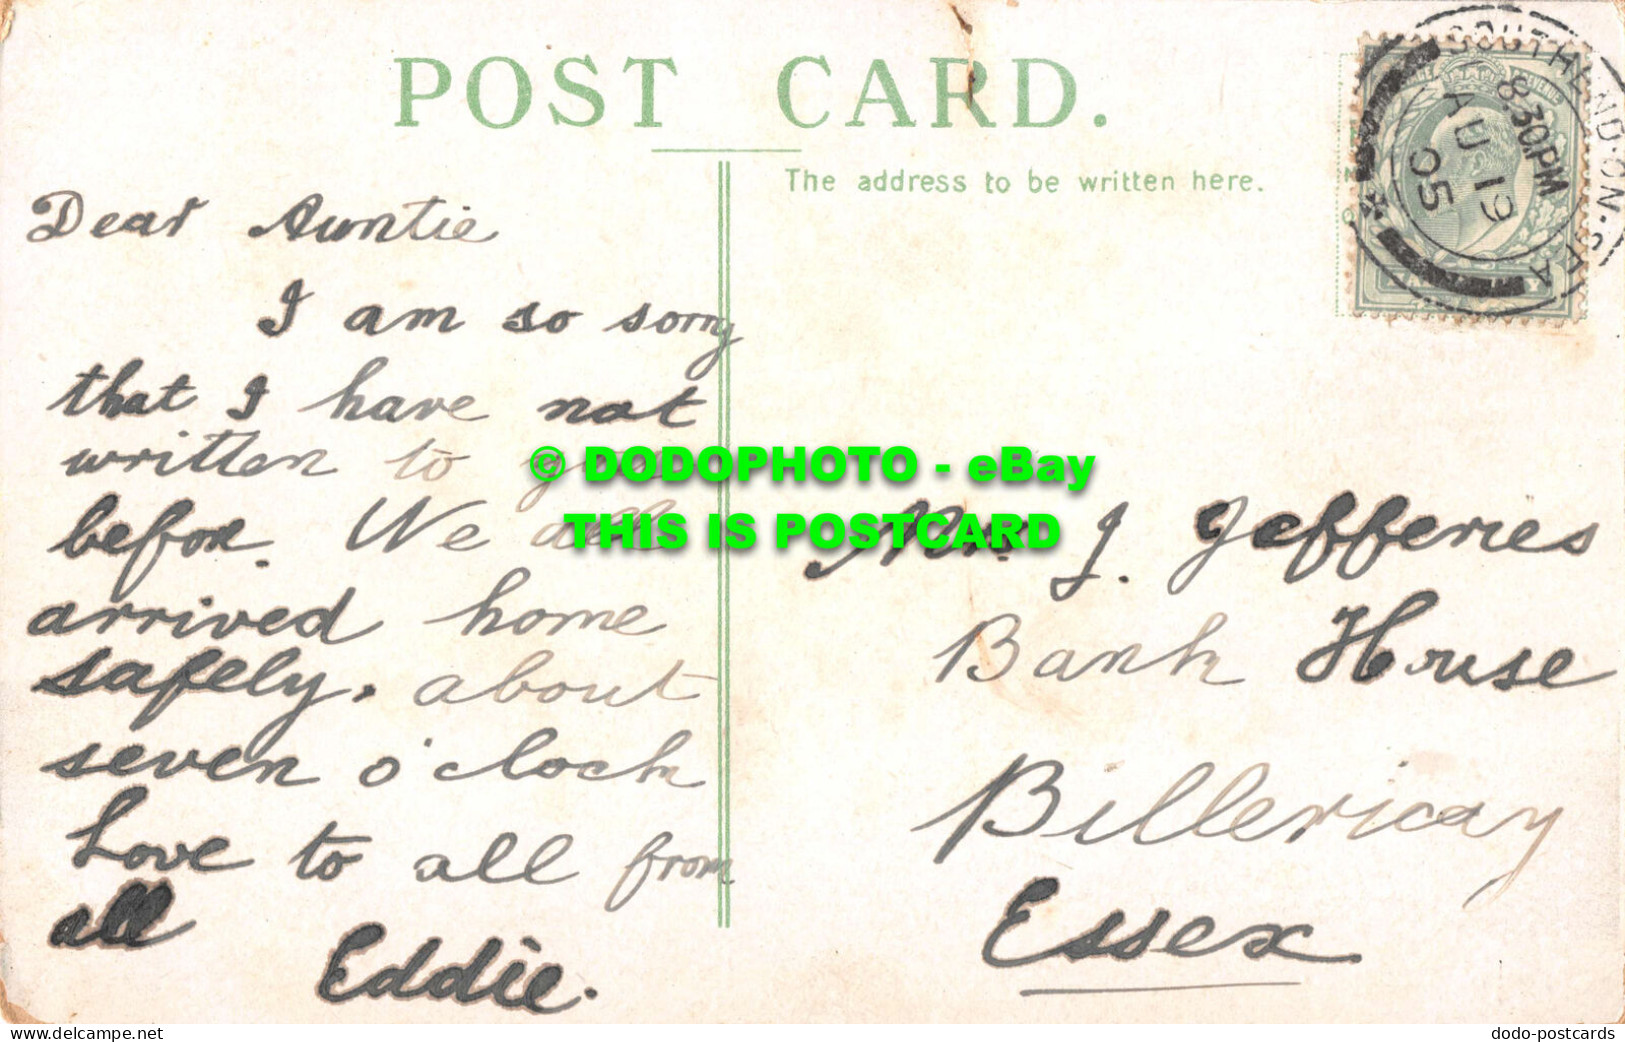 POST CARD.
The address to be written here.
SOUTHEND-ON-SEA
8.30PM
AU 19
05
Dear Auntie
I am so sorry
that I have not
written to you
before. We all
arrived home
safely. about
seven o'clock
Love to all from
all
Eddie.
Mrs J. Jefferies
Bank House
Billericay
Essex
© DODOPHOTO - eBay
THIS IS POSTCARD
Delcampe.net
dodo-postcards